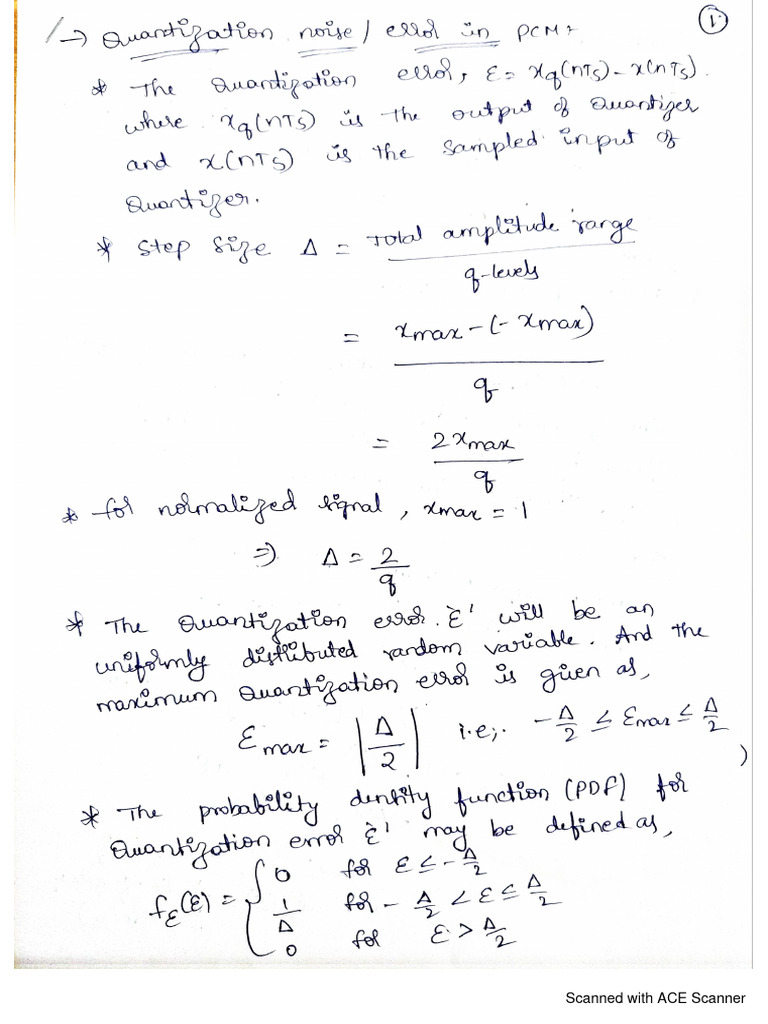 1.
→ Quantization noise / error in PCM:
* The Quantization error, ε = xq(nTs) - x(nTs).
where xq(nTs) is the output of Quantizer
and x(nTs) is the sampled input of
Quantizer.
* Step size Δ = Total amplitude range / q-levels
= xmax - (- xmax) / q
= 2xmax / q
* for normalized signal, xmax = 1
⇒ Δ = 2/q
* The Quantization error 'ε' will be an
uniformly distributed random variable. And the
maximum Quantization error is given as,
εmax = |Δ/2| i.e;. -Δ/2 ≤ εmax ≤ Δ/2
* The probability density function (PDF) for
Quantization error 'ε' may be defined as,
fε(ε) = { 0 for ε ≤ -Δ/2
1/Δ for -Δ/2 < ε ≤ Δ/2
0 for ε > Δ/2
Scanned with ACE Scanner